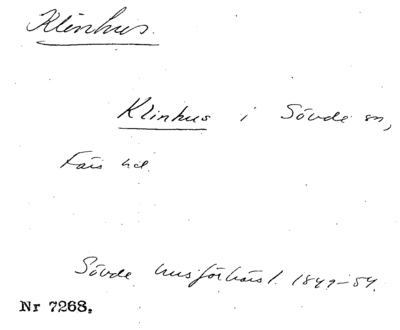 Klinhus.
Klinhus i Sövde sn,
Färs hd.
Sövde husförhörsl. 1849-54.
Nr 7268.